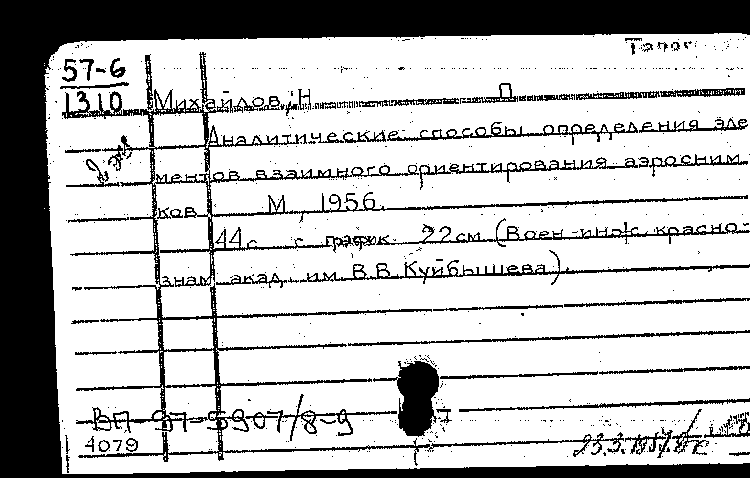 57-6
1310
Михайлов, Н. П
2 экз
Аналитические способы определения эле
ментов взаимного ориентирования аэросним
ков М., 1956.
44 с. с график. 22 см. (Воен-инж. красно-
знам. акад. им. В.В. Куйбышева).
ВП 57-5907/8-9
4079